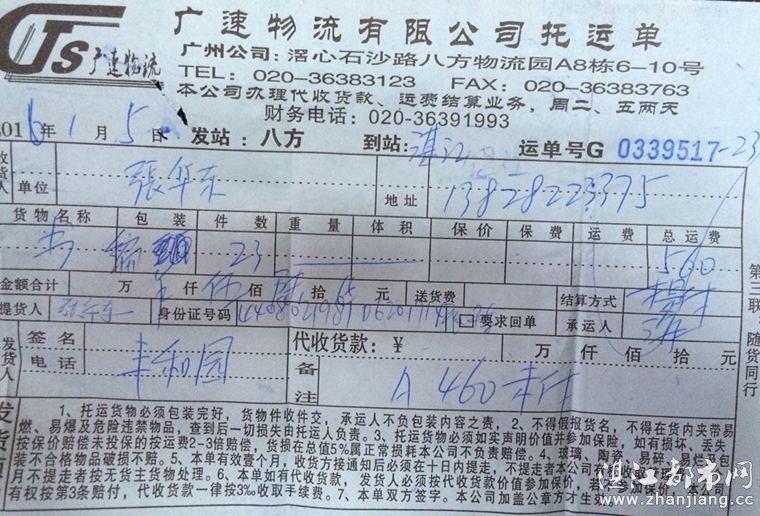 广速物流
广速物流有限公司托运单
广州公司：滘心石沙路八方物流园A8栋6-10号
TEL: 020-36383123 FAX: 020-36383763
本公司办理代收货款、运费结算业务，周二、五两天
财务电话：020-36391993
2016年1月5日 发站：八方 到站：湛江 运单号G 0339517-23
收货人 单位 張华东 地址 13828223375
货物名称 包装 件数 重量 体积 保价 保费 运费 总运费
23 560
金额合计 万 仟 佰 拾 元 送货费 结算方式
提货人 身份证号码 要求回单 承运人
发货人 签名 电话 丰和园 代收货款：￥ 万 仟 佰 拾 元
备注 A 460
第三联：随货同行
1、托运货物必须包装完好，货物件收件交，承运人不负包装内容之责，2、不得假报货名，不得在货内夹带易
燃、易爆及危险违禁物品，查到后一切损失由托运人负责。3、托运货物必须如实声明价值并参加保险，如有损坏、丢失
按保价赔偿未投保的按运费2-3倍赔偿，货损在总值5%属正常损耗本公司不负责赔偿。4、玻璃、陶瓷、易碎、易烂又包
装不合格物品破损不赔。5、本单有效壹个月，收货方接通知后必须在十日内提走，不提走者本公司
月不提走者按无货主货物处理。6、本单如有代收货款，发货人必须按代收货款价值参加保价，若
有权按第3条赔付，代收货款一律按3‰收取手续费。7、本单双方签字。本公司加盖公章方才生效。
湛江都市网
www.zhanjiang.cc